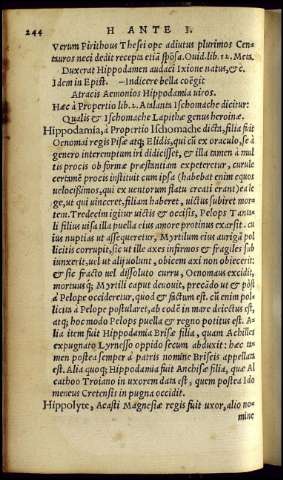 244 H ANTE I.
Verum Pirithous Thesei ope adiutus plurimos Cen=
tauros neci dedit recepta etiā spōsa. Ouid. lib. 12. Meta.
Duxerat Hippodamen audaci Ixione natus, &c.
Idem in Epist. —Indicere bella coëgit
Atracis Aemonios Hippodamia uiros.
Haec à Propertio lib. 2. Atalantis Ischomache dicitur:
Qualis & Ischomache Lapithae genus heroinae.
Hippodamia, à Propertio Ischomache dicta, filia fuit
Oenomai regis Pisae atq; Elidis, qui cū ex oraculo, se à
genero interemptum iri didicisset, & illa tamen à mul
tis procis ob formae praestantiam expeteretur, curule
certamē procis instituit cum ipsa (habebat enim equos
uelocissimos, qui ex uentorum flatu creati erant) ea le
ge, ut qui uinceret, filiam haberet, uictus subiret mor=
tem. Tredecim igitur uictis & occisis, Pelops Tanta=
li filius uisa illa puella eius amore protinus exarsit. cu
ius nuptias ut assequeretur, Myrtilum eius aurigā pol
licitis corrupit, sic ut ille axes infirmos & fragiles sub
iunxerit, uel ut alij uolunt, obicem axi non obiecerit:
& sic fracto uel dissoluto curru, Oenomaus excidit,
mortuusq; Myrtili caput deuouit, precādo ut & ipse
à Pelope occideretur, quod & factum est. cū enim pol=
licita à Pelope postularet, ab eodē in mare deiectus est,
atq; hoc modo Pelops puella & regno potitus est. A=
lia item fuit Hippodamia Brisae filia, quam Achilles
expugnato Lyrnesso oppido secum abduxit: haec ta=
men postea semper à patris nomine Briseis appellata
est. Alia quoq; Hippodamia fuit Anchisae filia, quae Al
cathoo Troiano in uxorem data est, quem postea Ido
meneus Cretensis in pugna occidit.
Hippolyte, Acasti Magnesiae regis fuit uxor, alio no=
mine